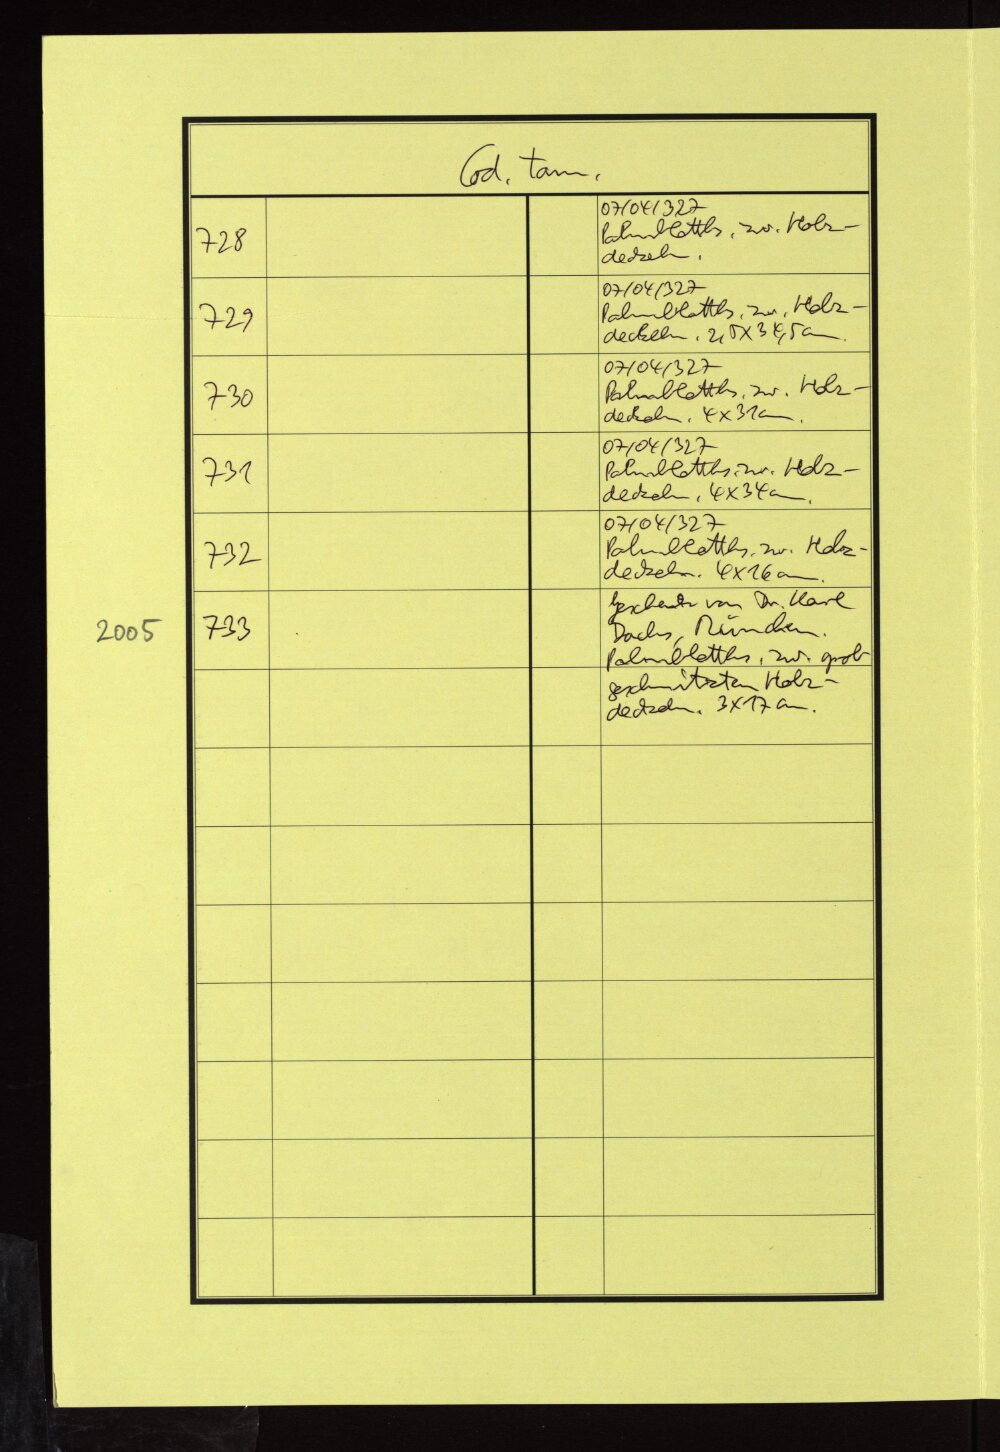 Cod. tam.
728
07/04/327
Palmblatths. zw. Holz-
deckeln.
729
07/04/327
Palmblatths. zw. Holz-
deckeln. 2,5x34,5cm.
730
07/04/327
Palmblatths. zw. Holz-
deckeln. 4x31cm.
731
07/04/327
Palmblatths. zw. Holz-
deckeln. 4x34cm.
732
07/04/327
Palmblatths. zw. Holz-
deckeln. 4x16cm.
2005
733
Geschenk von Dr. Karl
Dachs, München.
Palmblatths. zw. grob
geschnitzten Holz-
deckeln. 3x17cm.